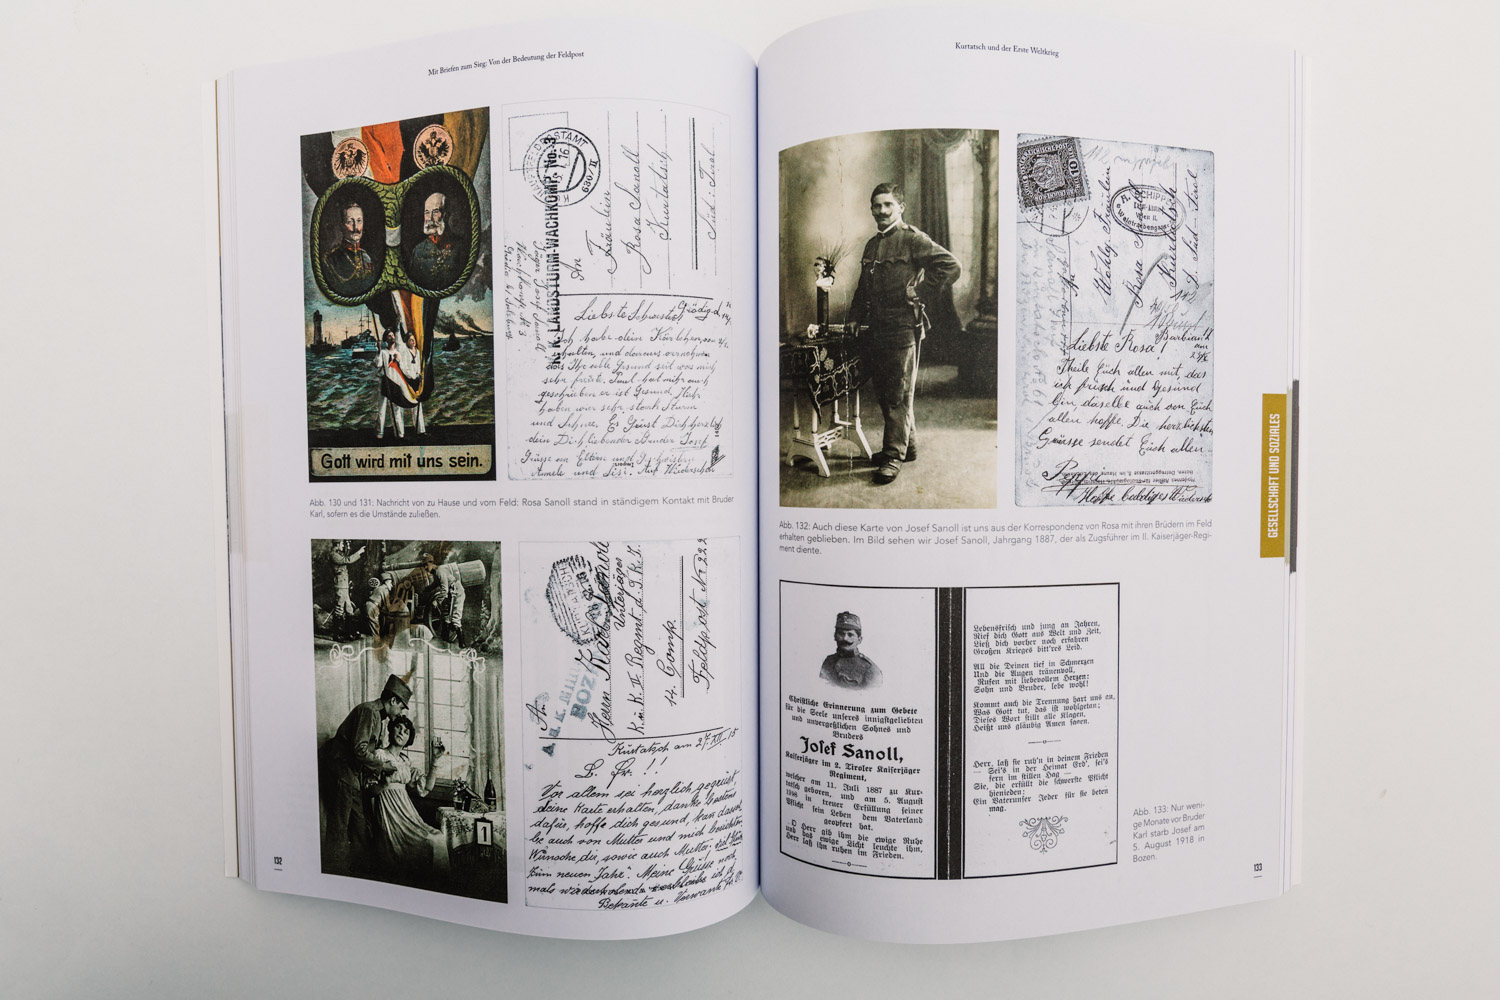 Mit Briefen zum Sieg: Von der Bedeutung der Feldpost
Gott wird mit uns sein.
K.K. LANDSTURM-WACHKOMP. No. 3
630/II
An
Fräulein
Rosa Sanoll
Kurtatsch
Süd: Tirol
Liebste Schwester
Grödig d.
Ich habe dein Kärtchen
erhalten, und daraus vernohmen
das Ihr alle Gesund seit was mich
sehr freute. Paul hat mihr auch
geschrieben er ist Gesund. Hihr
haben wir sehr stark Sturm
und Schnee. Es Grüst Dich herzlich
dein Dich liebender Bruder Josef
Grüsse an Eltern und Geschwistern
Auf Widersehen
Abb. 130 und 131: Nachricht von zu Hause und vom Feld: Rosa Sanoll stand in ständigem Kontakt mit Bruder
Karl, sofern es die Umstände zuließen.
1
An
Herrn Karl Sanoll
Unterjäger
K.u.K. II. Regmt. d. T. K. J.
14. Comp.
Feldpost No 222
BOZ
Kurtatsch am 27. XII. 15
L. Br. !!
Vor allem sei herzlich gegrüst
Deine Karte erhalten, danke bestens
dafür, hoffe dich gesund, kan dasselbe
be auch von Mutter und mich berichten
Wünsche dir, sowie auch Mutter, viel Glück
zum neuen Jahr. Meine Grüsse noch
mals
Bekannte u. Verwante
132
Kurtatsch und der Erste Weltkrieg
10
Fräulein
Rosa
Kurtatsch
Süd-Tirol
Barbian
am
Liebste Rosa!
Theile Euch allen mit, das
ich frisch und Gesund
bin, daselbe auch von Euch
allen hoffe. Die herzlichsten
Grüsse sendet Euch allen
Hoffe baldiges Wiedersehn
Abb. 132: Auch diese Karte von Josef Sanoll ist uns aus der Korrespondenz von Rosa mit ihren Brüdern im Feld
erhalten geblieben. Im Bild sehen wir Josef Sanoll, Jahrgang 1887, der als Zugsführer im II. Kaiserjäger-Regi-
ment diente.
Christliche Erinnerung zum Gebete
für die Seele unseres innigstgeliebten
und unvergeßlichen Sohnes und
Bruders
Josef Sanoll,
Kaiserjäger im 2. Tiroler Kaiserjäger
Regiment,
welcher am 11. Juli 1887 zu Kur-
tatsch geboren, und am 5. August
1918 in treuer Erfüllung seiner
Pflicht sein Leben dem Vaterland
geopfert hat.
O Herr gib ihm die ewige Ruhe
und das ewige Licht leuchte ihm,
Herr laß ihn ruhen im Frieden.
Lebensfrisch und jung an Jahren,
Rief dich Gott aus Welt und Zeit,
Ließ dich vorher noch erfahren
Großen Krieges bitt'res Leid.
All die Deinen tief in Schmerzen
Und die Augen tränenvoll,
Rufen mit liebevollem Herzen:
Sohn und Bruder, lebe wohl!
Kommt auch die Trennung hart uns an,
Was Gott tut, das ist wohlgetan;
Dieses Wort stillt alle Klagen,
Heißt uns gläubig Amen sagen.
Herr, laß sie ruh'n in deinem Frieden
— Sei's in der Heimat Erd', sei's
fern im stillen Hag —
Sie, die erfüllt die schwerste Pflicht
hienieden:
Ein Vaterunser Jeder für sie beten
mag.
Abb. 133: Nur weni-
ge Monate vor Bruder
Karl starb Josef am
5. August 1918 in
Bozen.
GESELLSCHAFT UND SOZIALES
133